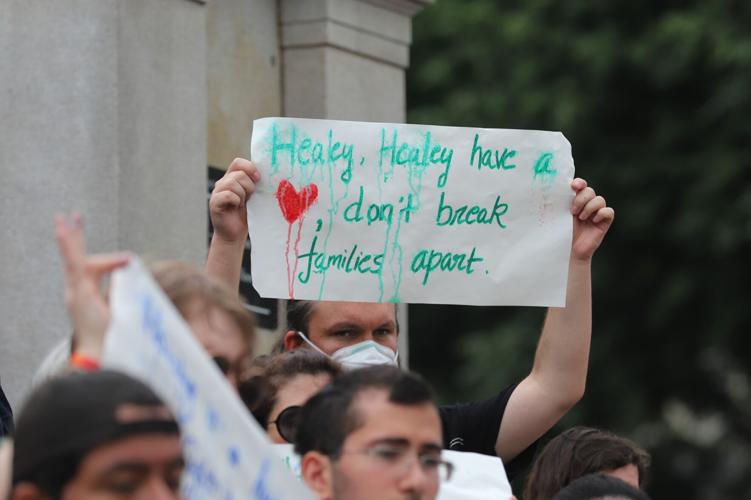 Healey, Healey have a
, don't break
families apart.